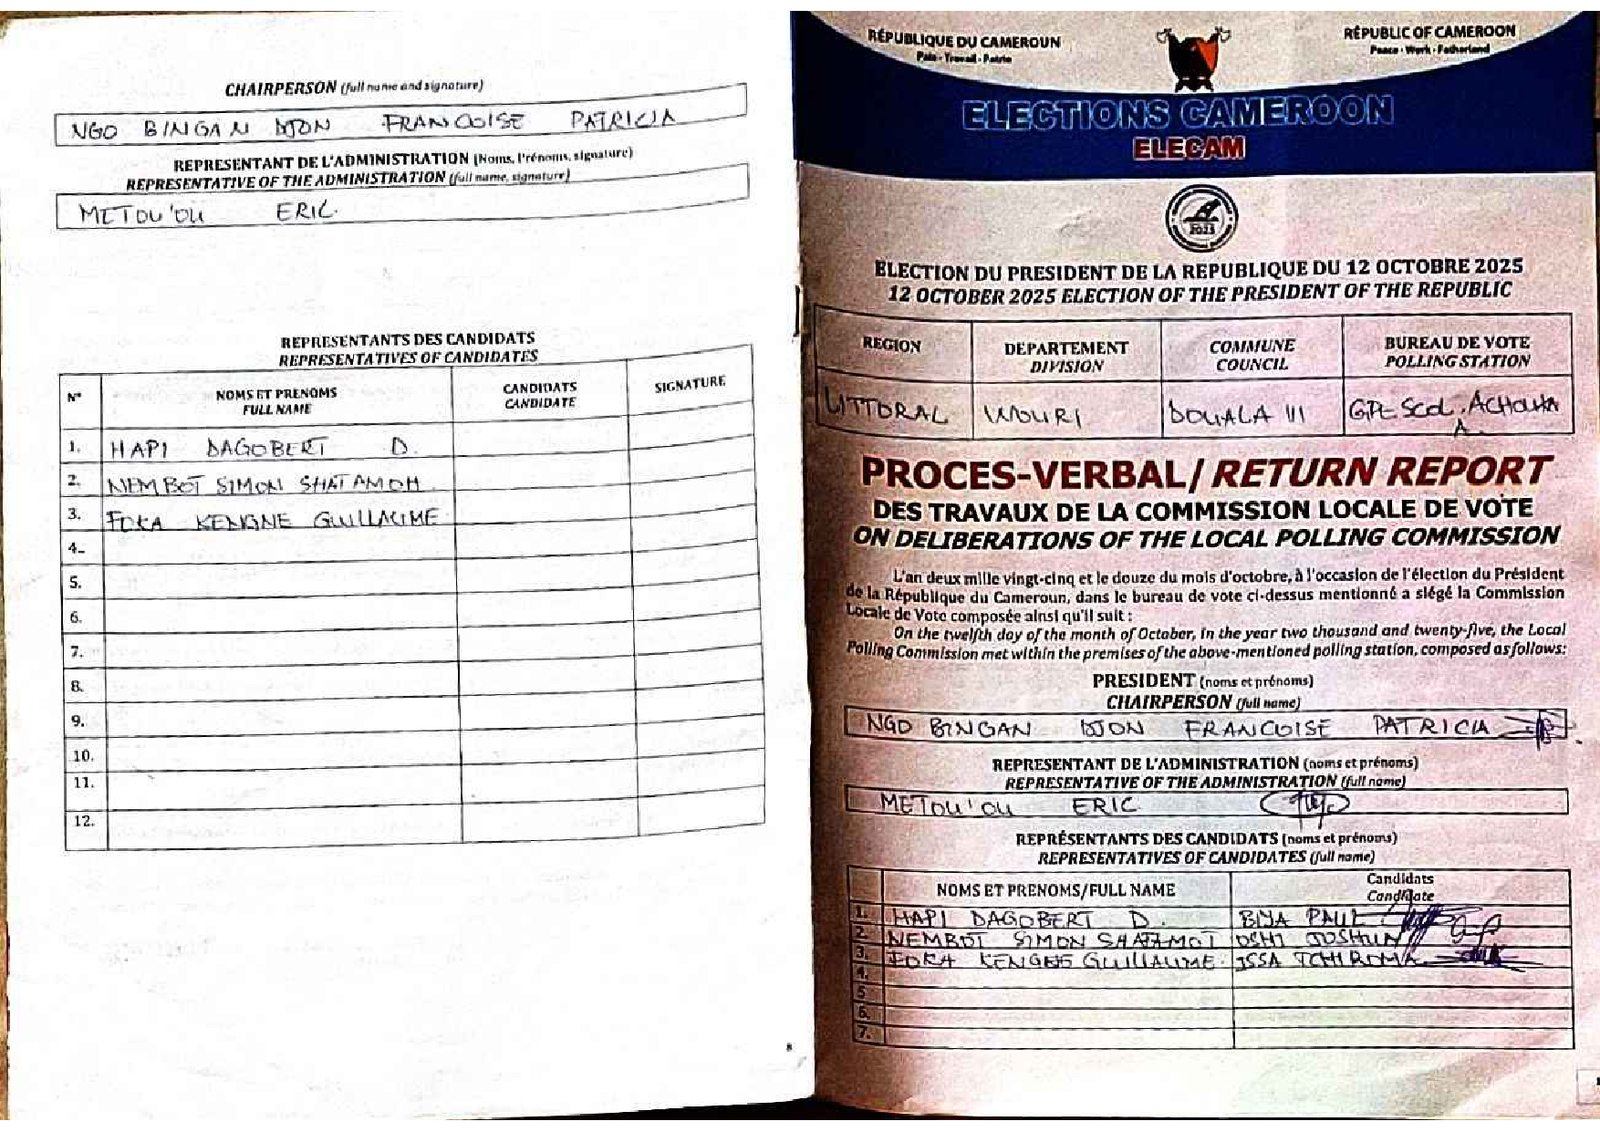 CHAIRPERSON (full name and signature)
NGO BINGAN DJON FRANCOISE PATRICIA
REPRESENTANT DE L'ADMINISTRATION (Noms, Prénoms, signature)
REPRESENTATIVE OF THE ADMINISTRATION (full name, signature)
METOU'OU ERIC.
REPRESENTANTS DES CANDIDATS
REPRESENTATIVES OF CANDIDATES
N° NOMS ET PRENOMS FULL NAME CANDIDATS CANDIDATE SIGNATURE
1. HAPI DAGOBERT D.
2. NEMBOT SIMON SHATAMOH
3. FOKA KENGNE GUILLAUME
4.
5.
6.
7.
8.
9.
10.
11.
12.
8
RÉPUBLIQUE DU CAMEROUN
Paix - Travail - Patrie
RÉPUBLIC OF CAMEROON
Peace - Work - Fatherland
ELECTIONS CAMEROON
ELECAM
2025
ELECTION DU PRESIDENT DE LA REPUBLIQUE DU 12 OCTOBRE 2025
12 OCTOBER 2025 ELECTION OF THE PRESIDENT OF THE REPUBLIC
REGION DEPARTEMENT DIVISION COMMUNE COUNCIL BUREAU DE VOTE POLLING STATION
LITTORAL WOURI DOUALA III GPE SCOL. ACHOUHA A.
PROCES-VERBAL/ RETURN REPORT
DES TRAVAUX DE LA COMMISSION LOCALE DE VOTE
ON DELIBERATIONS OF THE LOCAL POLLING COMMISSION
L'an deux mille vingt-cinq et le douze du mois d'octobre, à l'occasion de l'élection du Président
de la République du Cameroun, dans le bureau de vote ci-dessus mentionné a siégé la Commission
Locale de Vote composée ainsi qu'il suit :
On the twelfth day of the month of October, in the year two thousand and twenty-five, the Local
Polling Commission met within the premises of the above-mentioned polling station, composed as follows:
PRESIDENT (noms et prénoms)
CHAIRPERSON (full name)
NGO BINGAN DJON FRANCOISE PATRICIA
REPRESENTANT DE L'ADMINISTRATION (noms et prénoms)
REPRESENTATIVE OF THE ADMINISTRATION (full name)
METOU'OU ERIC
REPRÉSENTANTS DES CANDIDATS (noms et prénoms)
REPRESENTATIVES OF CANDIDATES (full name)
NOMS ET PRENOMS/FULL NAME Candidats Candidate
1. HAPI DAGOBERT D. BIYA PAUL
2. NEMBOT SIMON SHATAMOT OSHI JOSHUA
3. FOKA KENGNE GUILLAUME ISSA TCHIROMA
4.
5.
6.
7.